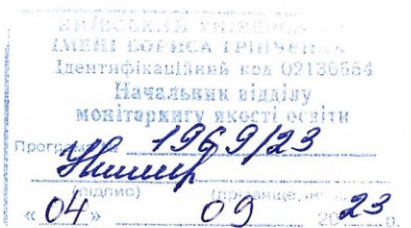 КИЇВСЬКИЙ УНІВЕРСИТЕТ
ІМЕНІ БОРИСА ГРІНЧЕНКА
Ідентифікаційний код 02136554
Начальник відділу
моніторингу якості освіти
Програма № 1969/23
(підпис) (прізвище,
«04» 09 2023 р.